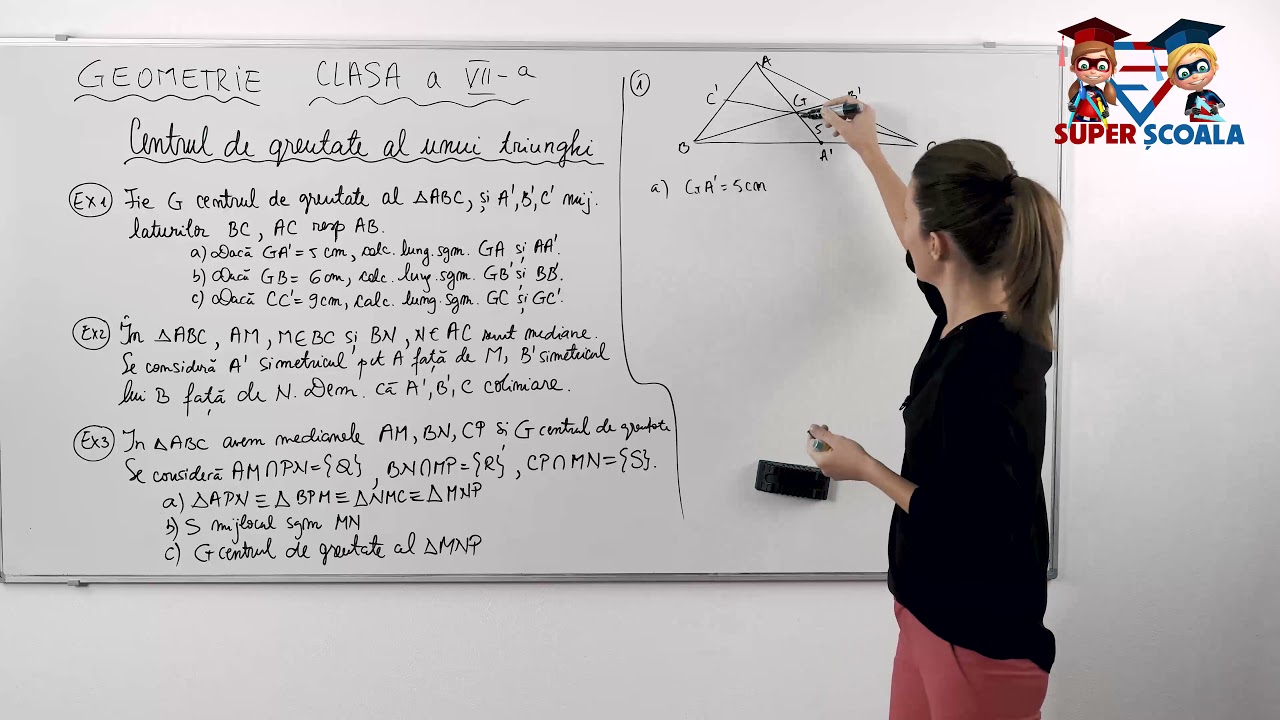 GEOMETRIE CLASA a VII-a
Centrul de greutate al unui triunghi
Ex1 Fie G centrul de greutate al △ABC, și A', B', C' mij.
laturilor BC, AC resp AB.
a) Dacă GA' = 5 cm, calc. lung. sgm. GA și AA'.
b) Dacă GB = 6 cm, calc. lung. sgm. GB' și BB'.
c) Dacă CC' = 9 cm, calc. lung. sgm. GC și GC'.
Ex2 În △ABC, AM, M∈BC și BN, N∈AC sunt mediane.
Se consideră A' simetricul pct A față de M, B' simetricul
lui B față de N. Dem. că A', B', C coliniare.
Ex3 În △ABC avem medianele AM, BN, CP si G centrul de greutate
Se consideră AM∩PN={Q}, BN∩MP={R}, CP∩MN={S}.
a) △APN ≡ △BPM ≡ △NMC ≡ △MNP
b) S mijlocul sgm MN
c) G centrul de greutate al △MNP
1
A
C'
G
B'
5
B
A'
C
a) GA' = 5 cm
SUPER ȘCOALA